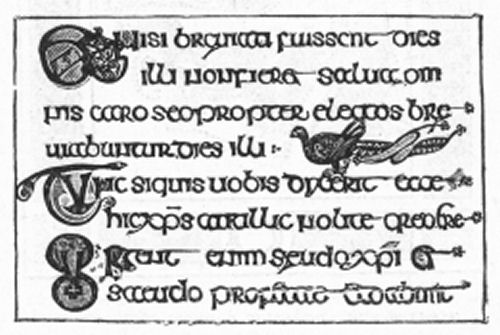 Et nisi breuiati fuissent dies
illi non fiere salua om
nis caro sed propter electos bre
uiabuntur dies illi :
Tunc siquis uobis dixerit ecce
hic xp̄s aut illic nolite credere
enim seudo xp̄i et
seudo dabunt